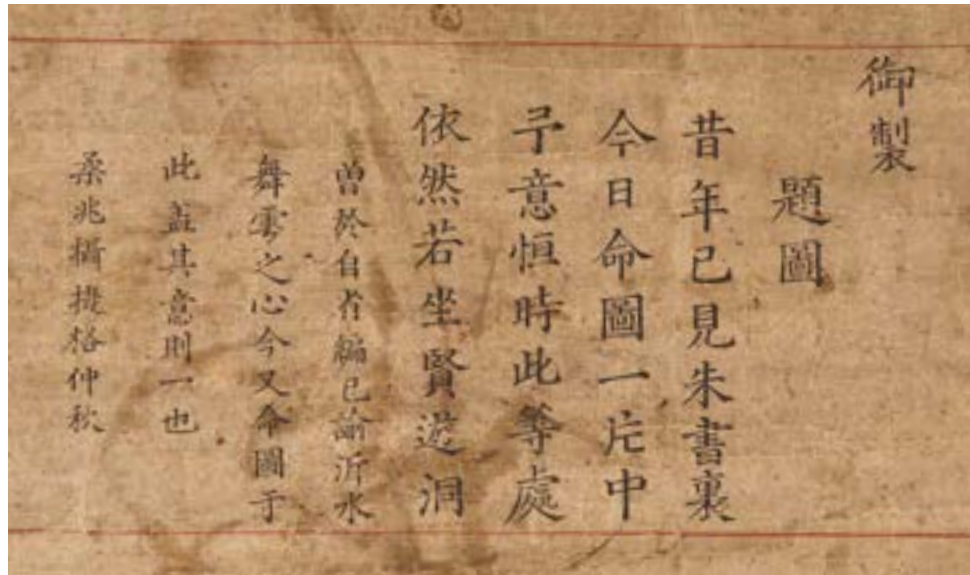 御製
題圖
昔年已見朱書裏
今日命圖一片中
予意恒時此等處
依然若坐賢遊洞
曽於自省編已諭沂水
舞雩之心今又命圖于
此盖其意則一也
柔兆攝提格仲秋